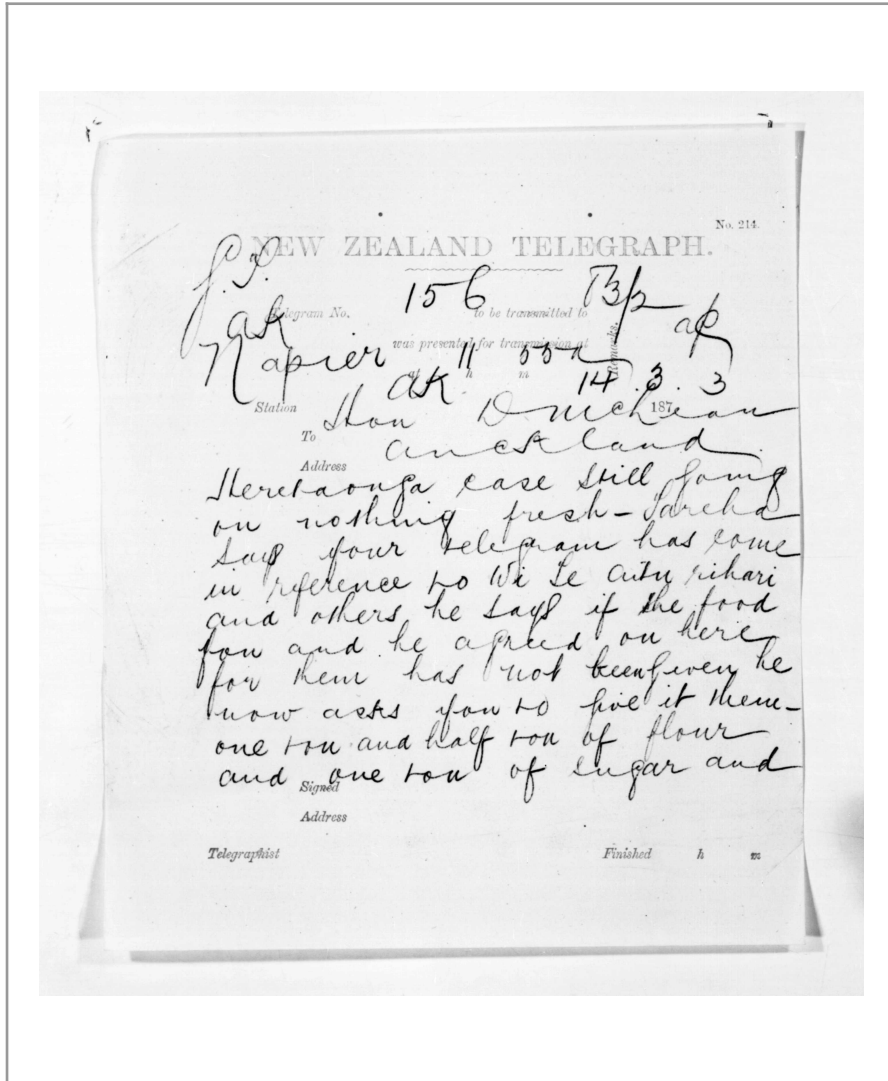 No. 214.
NEW ZEALAND TELEGRAPH.
Telegram No. 156 to be transmitted to
ak
was presented for transmission at Remarks.
Napier ak 11 h 55 m 14.3.3
Station 187
To Hon D McLean
Address Auckland
Heretaonga case still going
on nothing fresh - Tareha
says your telegram has come
in reference to Wi Te
and others he says if the food
you and he agreed on here
for them has not been given he
now asks you to give it them -
one ton and half ton of flour
and one ton of sugar and
Signed
Address
Telegraphist Finished h m